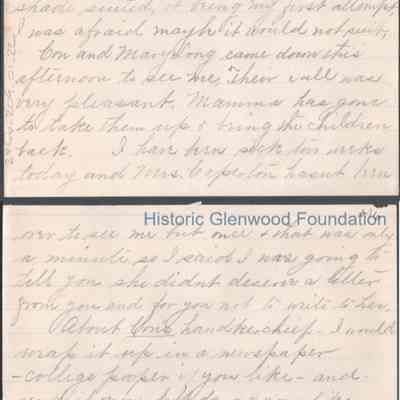 shade suited, it being my first attempt
I was afraid mayb it would not suit.
Con and Mary Long came down this
afternoon to see me. Their call was
very pleasant. Mamma has gone
to take them up & bring the children
back. I have been sick ten weeks
today and Mrs. Caperton hasnt been
Historic Glenwood Foundation
over to see me but once & that was only
a minute, so I said I was going to
tell you she didnt deserve a letter
from you and for you not to write to her.
About Cons handkerchief - I would
wrap it up in a newspaper
- college paper if you like - and